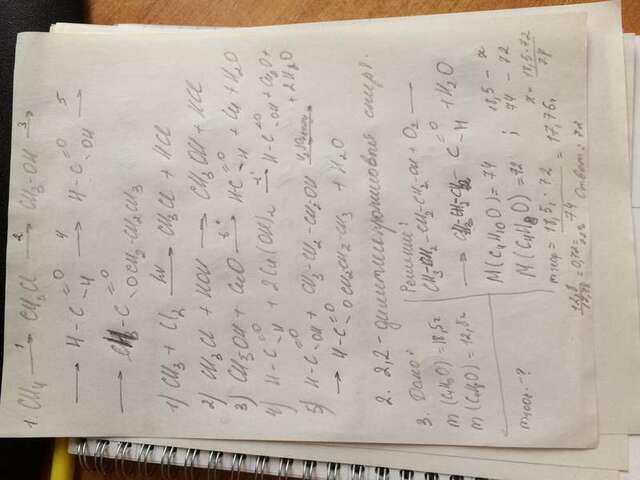 1. CH4 —1→ CH3Cl —2→ CH3-OH —3→
→ H-C =O -H —4→ H-C =O OH —5→
→ H-C =O OCH2-CH2CH3
1) CH3 + Cl2 —hν→ CH3Cl + HCl
2) CH3Cl + HOH → CH3OH + HCl
3) CH3OH + CuO —t°→ H-C =O H + Cu + H2O
4) H-C =O H + 2Cu(OH)2 —t°→ H-C =O OH + Cu2O +
+ 2H2O
5) H-C =O OH + CH3-CH2-CH2OH
→ H-C =O OCH2CH2-CH3 + H2O
2. 2,2- спирт.
3. Дано:
m (C4H10O) = 18,5г
m (C4H8O) = 12,8г
Решение:
CH3-CH2-CH2-CH2-OH + O2 —
→ CH3-CH2-CH2- C =O H + H2O
M(C4H10O) = 74
M(C4H8O) = 72
;
18,5 - x
74 - 72
x = 18,5·72 / 74
= 18,5·72 / 74 = 17,76г
12,8 = 0,72 =
Ответ: 72